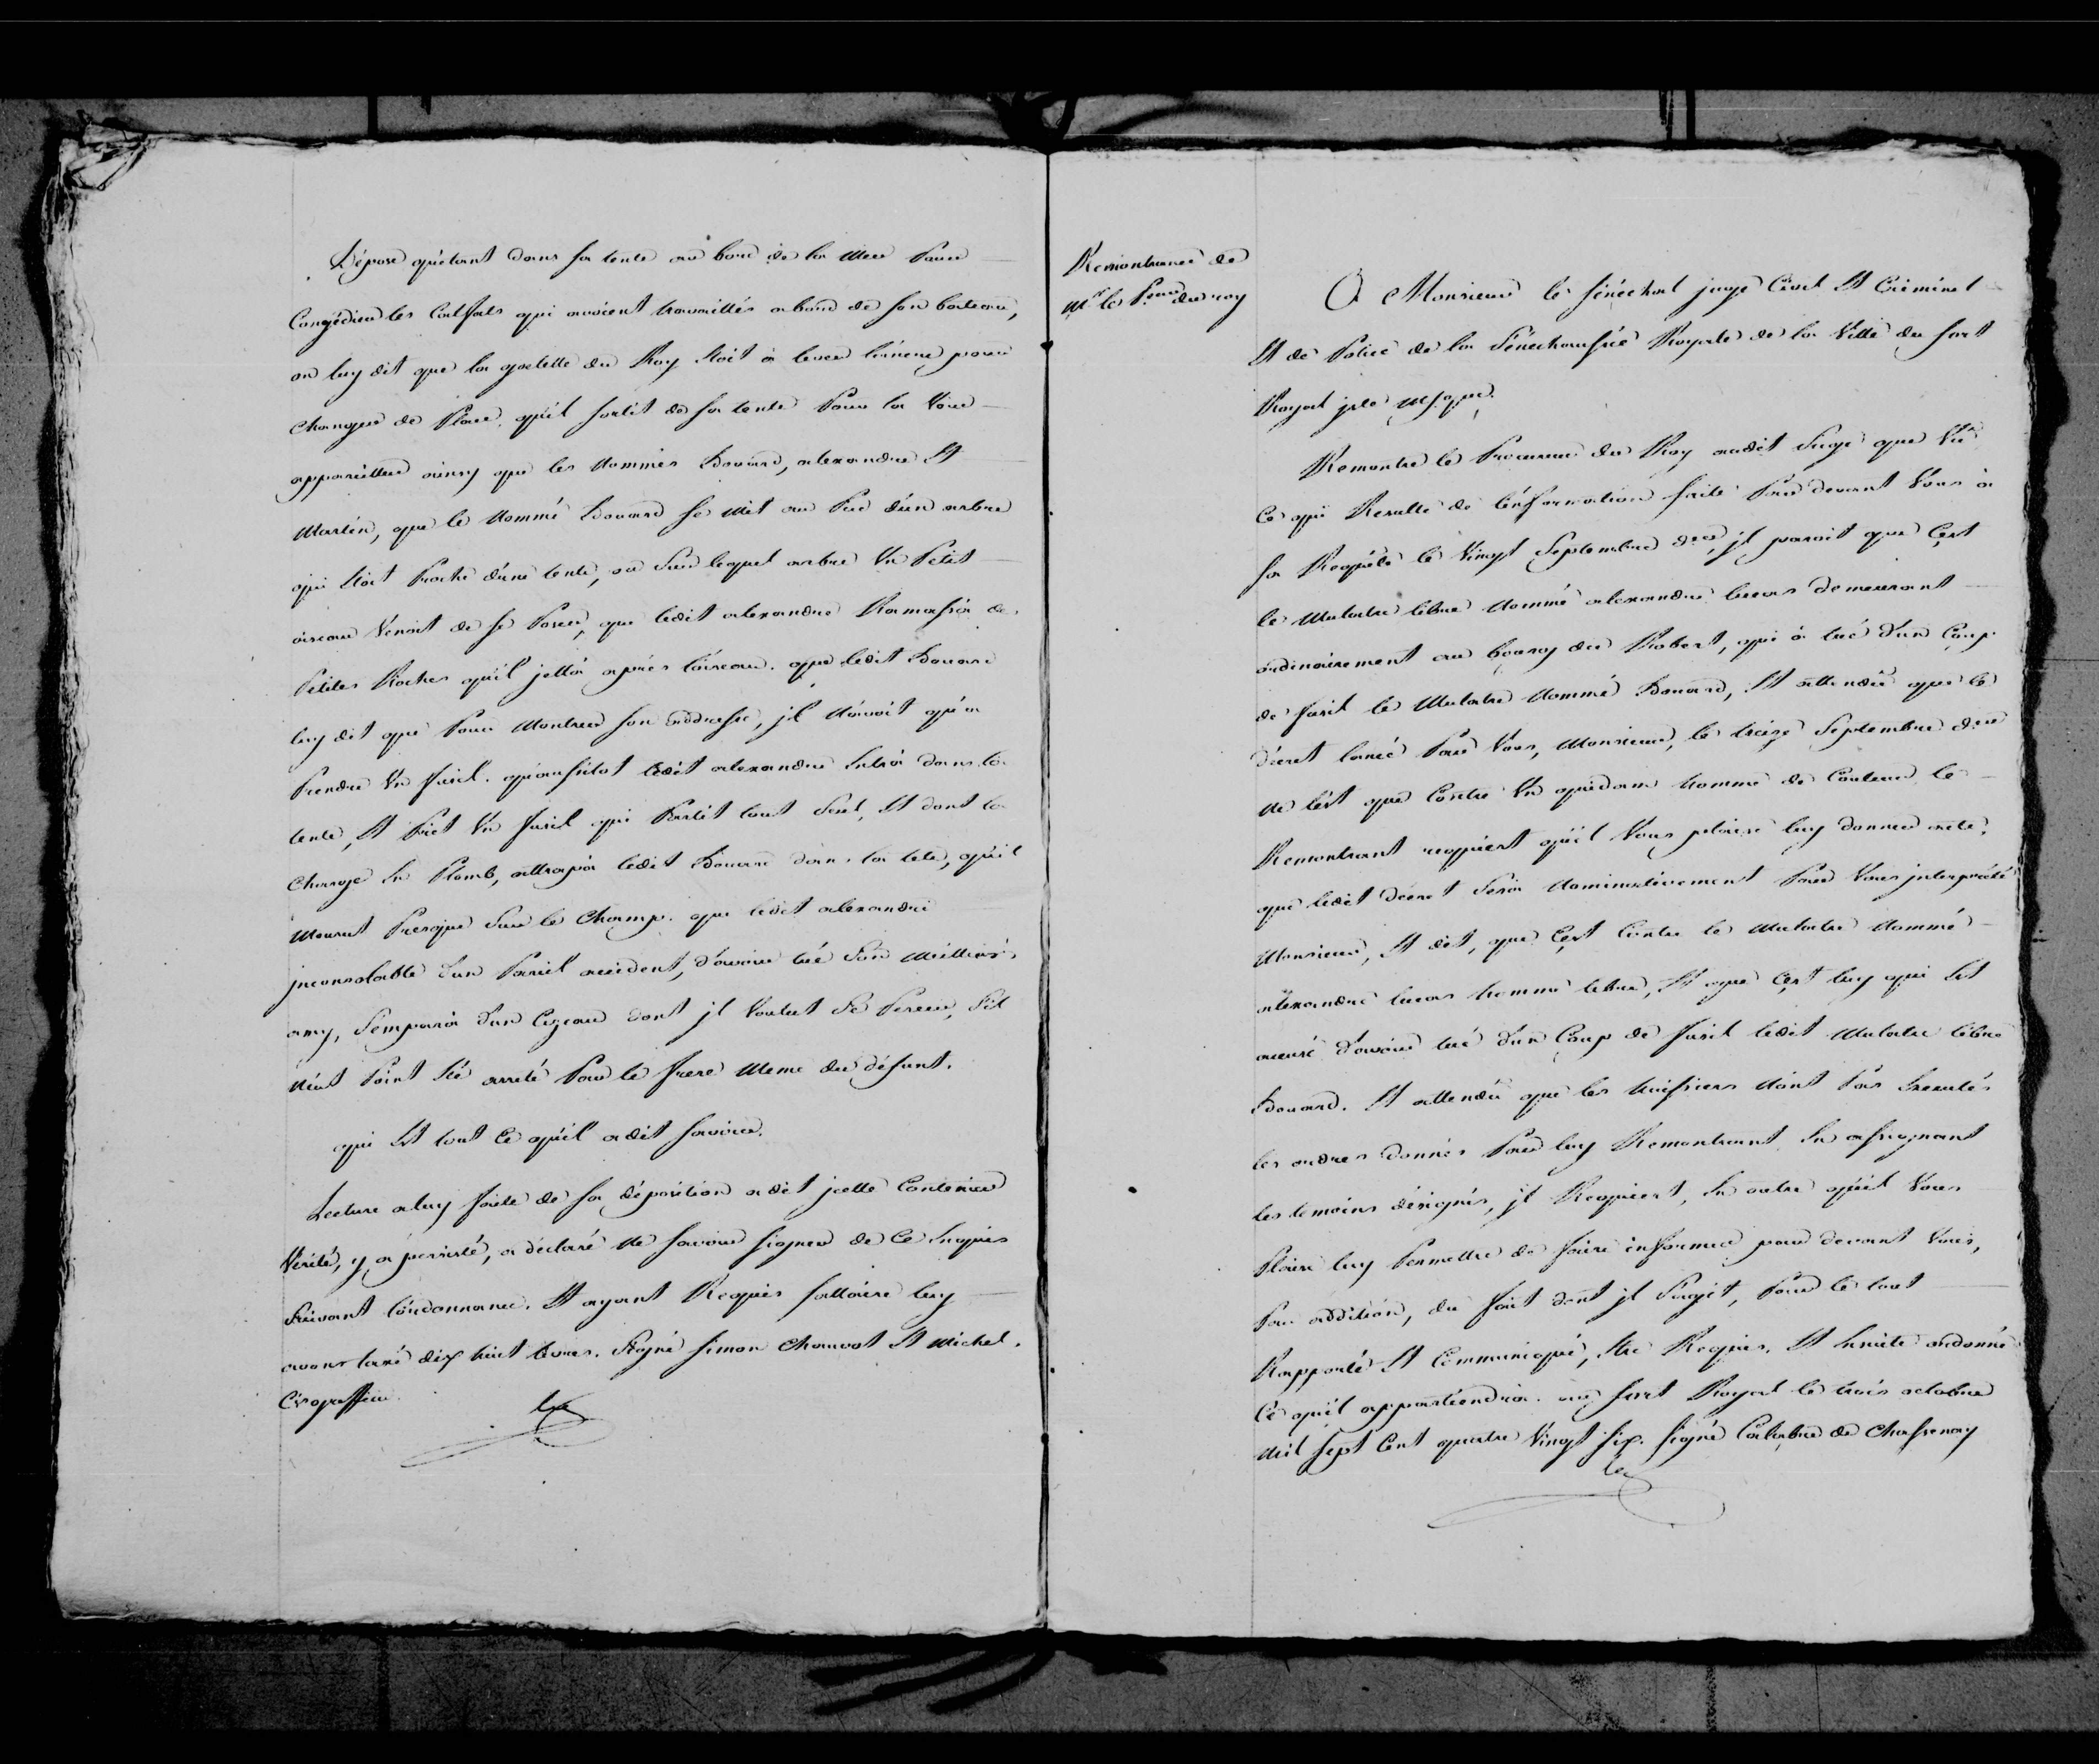 Dépose qu'étant dans sa tente au bord de la Mer Pour
Congédier les Calfats qui avoient travaillés abord de son bateau,
on luy dit que la goelette du Roy étoit à lever l'ancre pour
changer de Place. qu'il sortit de sa tente Pour la Voir
appareiller ainsy que les Nommés Edouard, alexandre Et
Martin, que le Nommé Edouard se Mit au Pied d'un arbre
qui étoit Proche d'une tente, ou Sur lequel arbre Un Petit
oiseau Venoit de se Poser, que ledit alexandre Ramassa de
Petites Roches qu'il jetta après l'oiseau. que ledit Edouard
luy dit que Pour Montrer son addresse, il N'avoit qu'a
Prendre Un fusil. qu'aussitot ledit alexandre Entra dans la
tente, Et Prit Un fusil qui Partit tout Seul, Et dont la
charge En Plomb, attrapa ledit Edouard dans la tete, qu'il
Mourut Presque Sur le Champ. que ledit alexandre
inconsolable d'un Pareil accident, d'avoir tué Son Meilleur
amy, S'empara d'un Cizeau dont il Voulut Se Percer, S'il
N'eut Point Eté arreté Par le frere Meme du défunt.
qui Est tout Ce qu'il a dit savoir.
Lecture a luy faite de sa déposition a dit icelle Contenir
Vérité, y a persisté, a déclaré Ne savoir signer de Ce Enquis
Suivant l'ordonnance. Et ayant Requis sallaire luy
avons taxé dix huit livres. Signé Simon Chauvot Et Michel.
Cvograffier.
Remontrance de
Mr. le Pcureur du roy
A Monsieur le sénéchal juge Civil Et Criminel
Et de Police de la Sénéchaussée Royale de la Ville du fort
Royal isle Mque.
Remontre le Procureur du Roy audit Siege que Vû
Ce qui Resulte de l'information faite Par devant Vous à
sa Requéte le Vingt Septembre der, il paroit que C'est
le Mulatre libre Nommé alexandre lucas demeurant
ordinairement au bourg du Robert, qui a tué d'un Coup
de fusil le Mulatre Nommé Edouard, Et attendû que le
décret lancé Par Vous, Monsieur, le treize Septembre der
Ne l'est que Contre Un quidam homme de Couleur le
Remontrant requiert qu'il Vous plaise luy donner acte,
que ledit décret Sera Nominativement Par Vous interprété
Monsieur, Et dit, que C'est Contre le Mulatre Nommé
alexandre lucas homme libre, Et que C'est luy qui Est
accusé d'avoir tué d'un Coup de fusil ledit Mulatre libre
Edouard. Et attendû que les huissiers N'ont Pas Executés
les ordres donnés Par luy Remontrant En assignant
les temoins désignés, il Requiert, En outre qu'il Vous
Plaise luy Permettre de faire informer par devant Vous,
Par addition, du fait dont il S'agit, Pour le tout
Rapporté Et Communiqué, Etre Requis, Et Ensuite ordonné
Ce qu'il appartiendra. au fort Royal le trois octobre
Mil Sept Cent quatre Vingt six. Signé Calabre de Chassenay